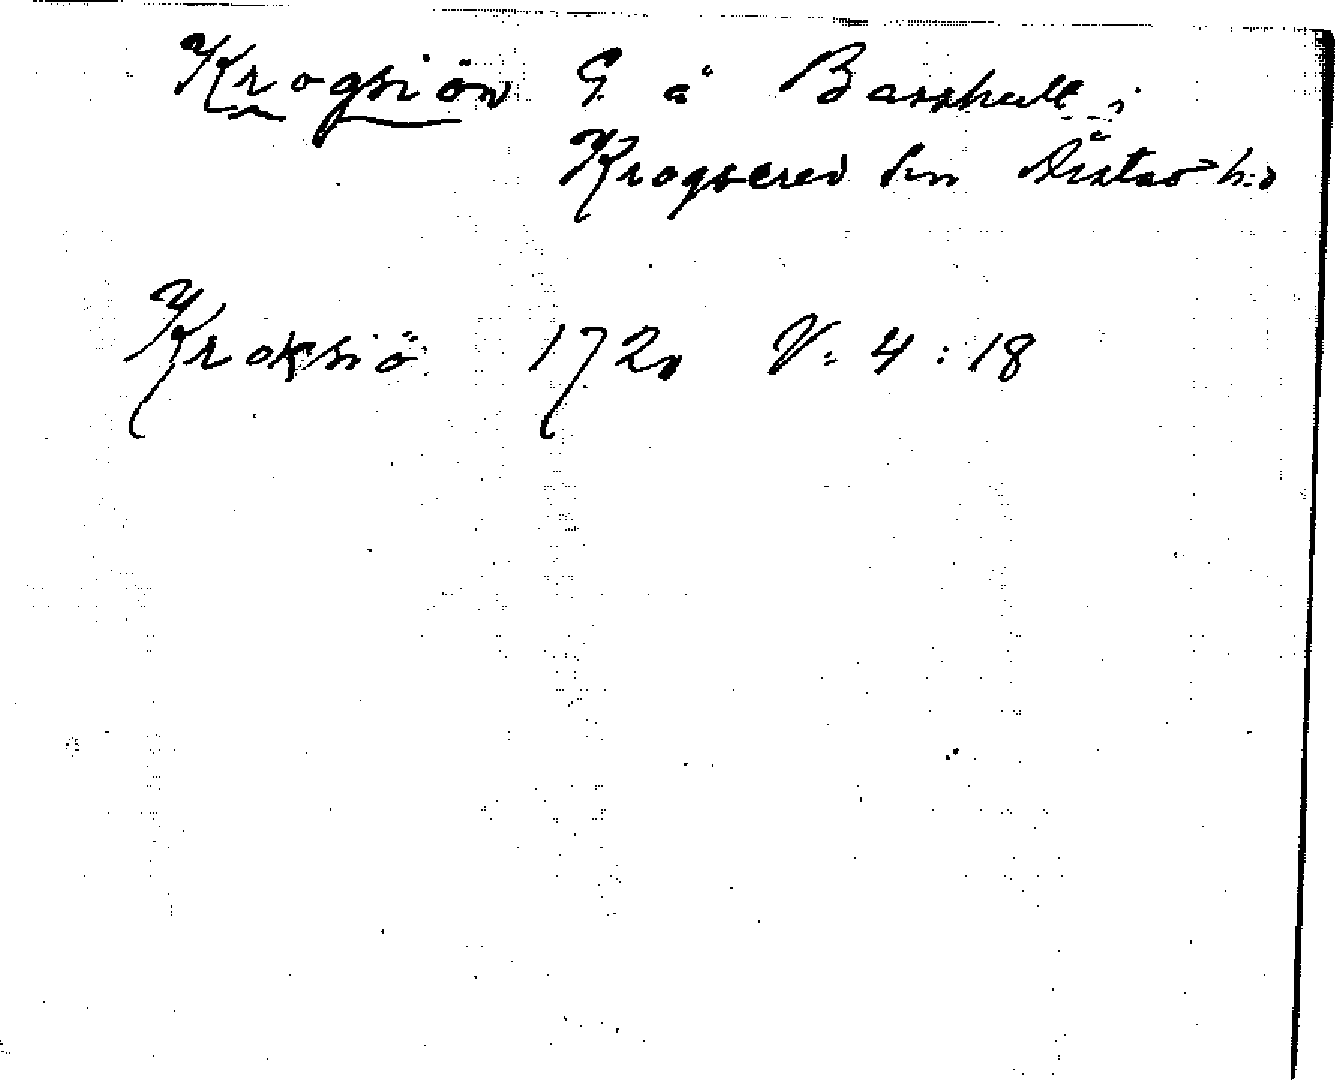 Krogsiön G. å Baxhult i
Krogsered sn Årstad h:d
Kroksiö 172 V: 4:18